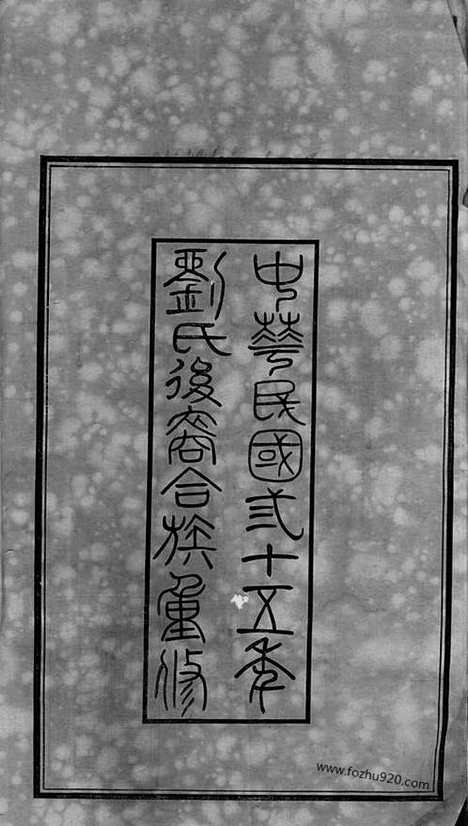 中華民國弍十五年
劉氏後裔合族重修
www.fozhu920.com